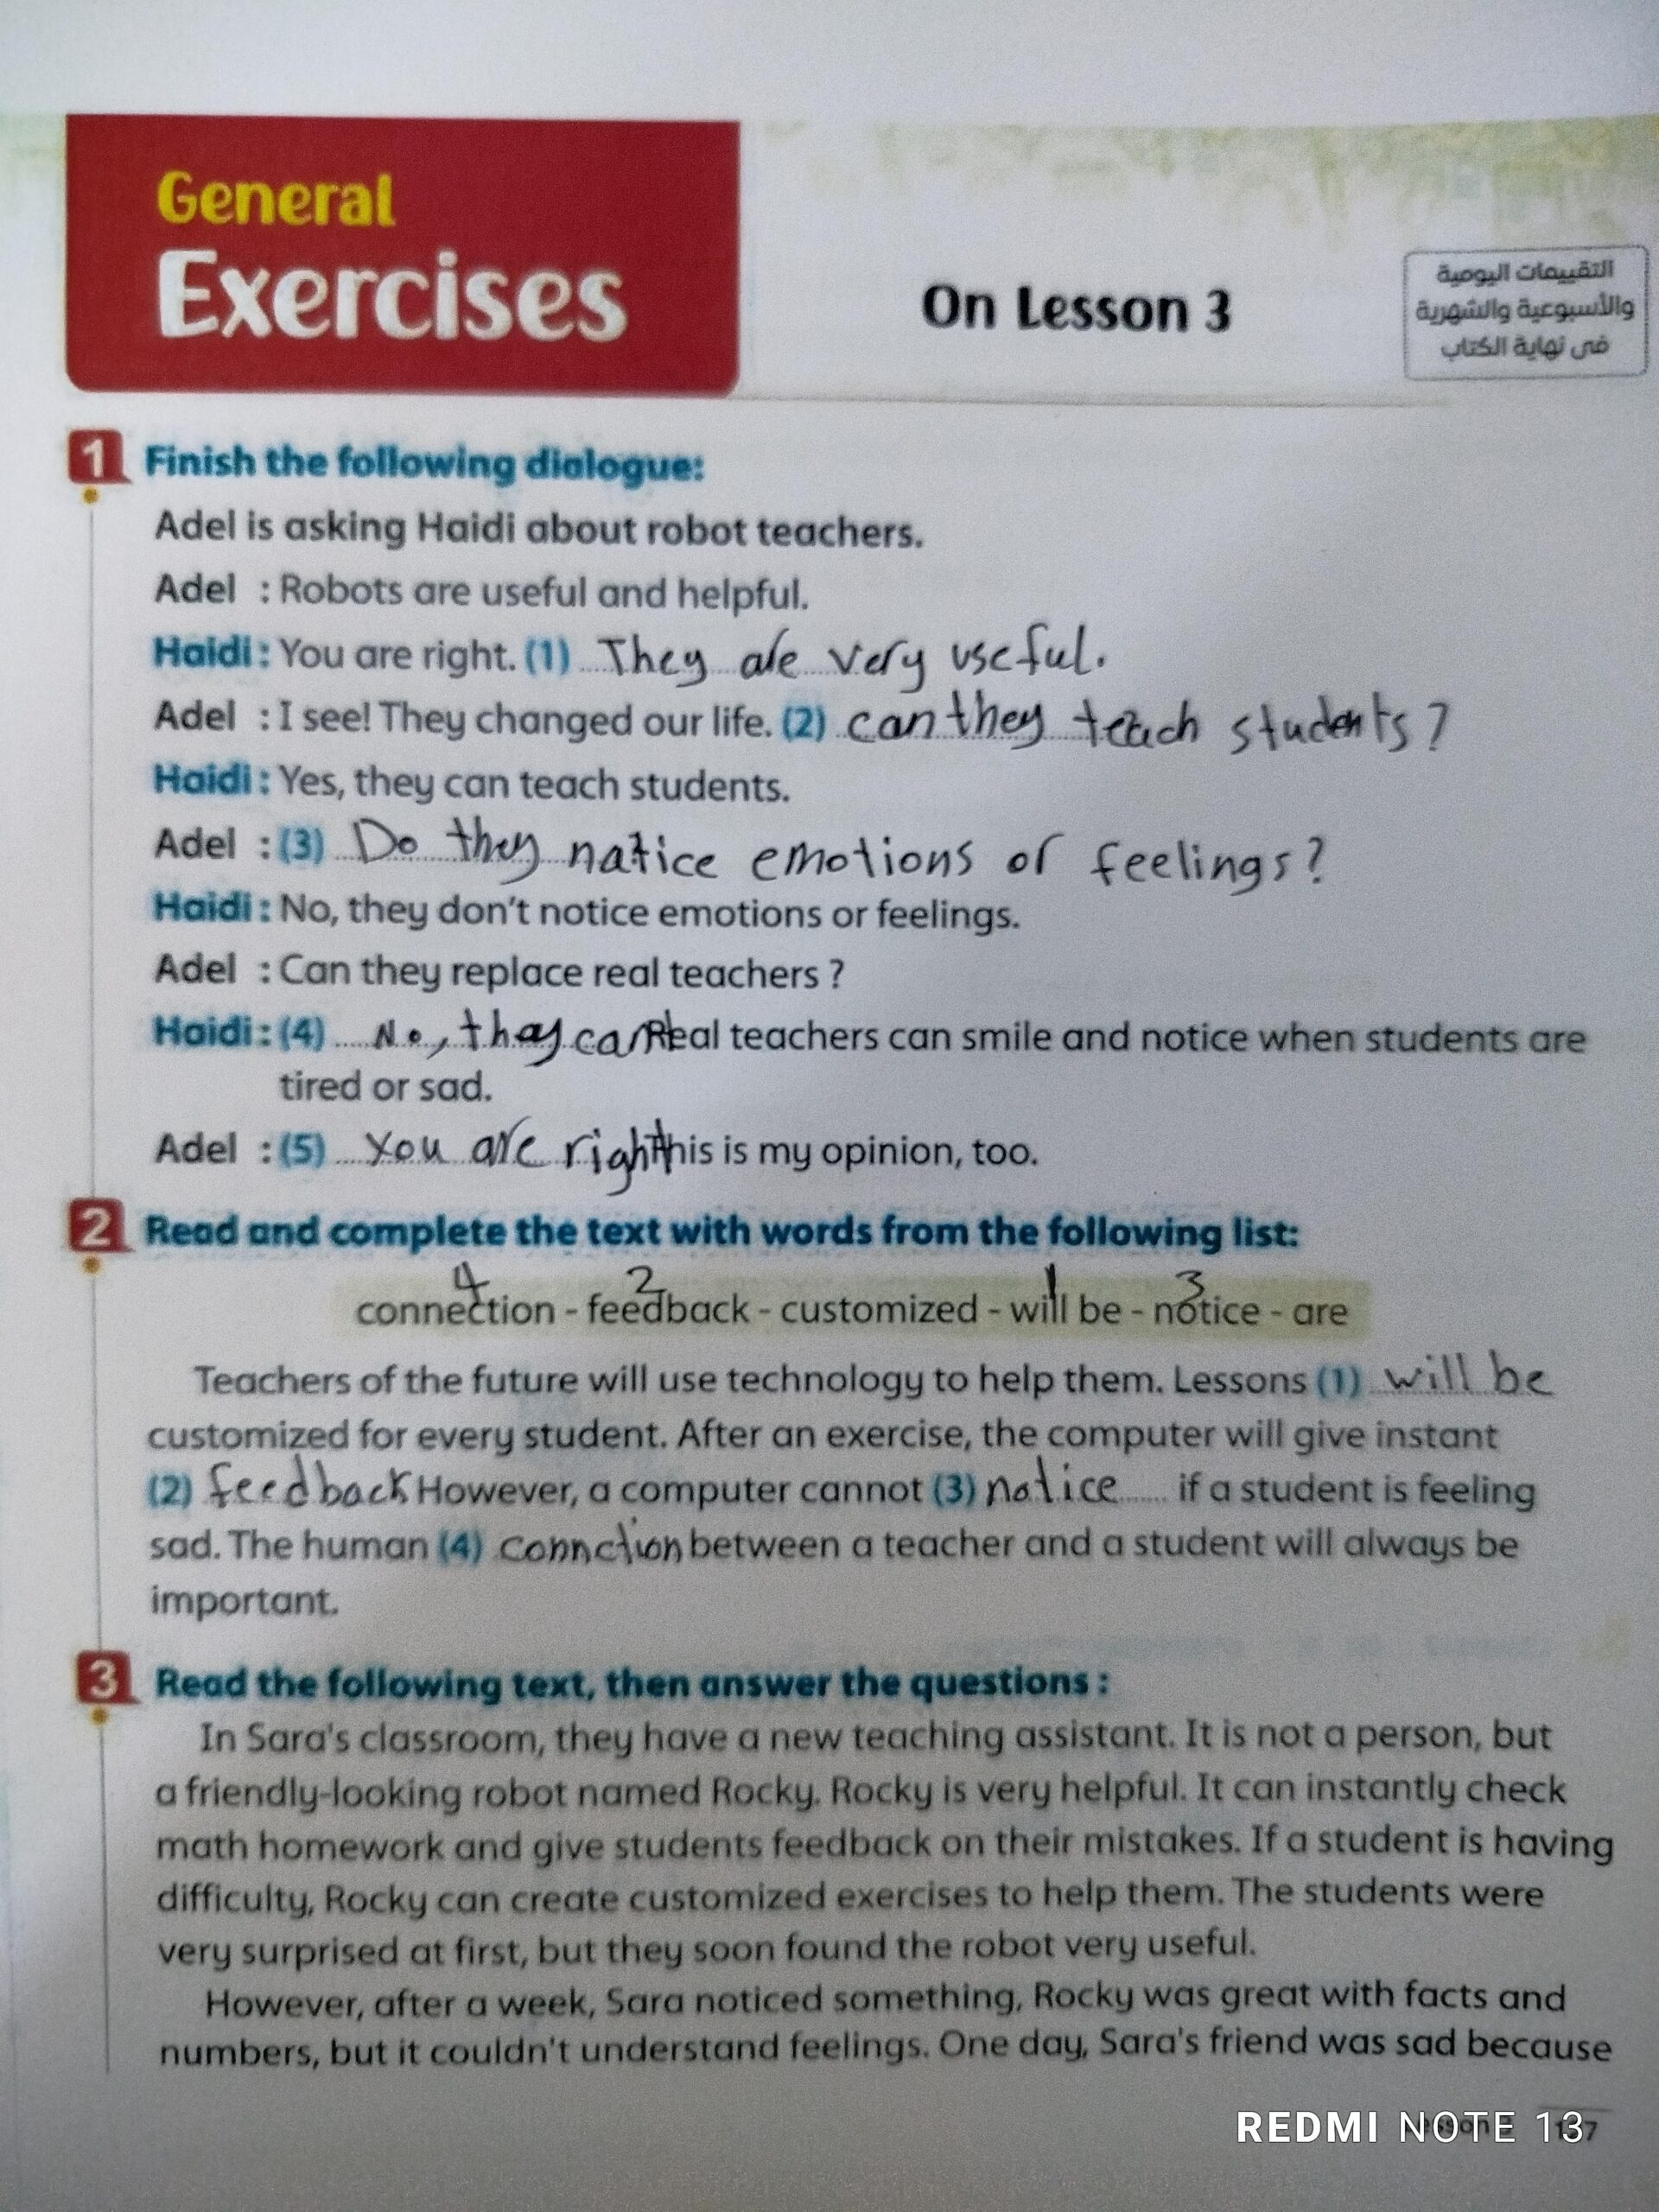 General
Exercises
On Lesson 3
التقييمات اليومية
والأسبوعية والشهرية
فى نهاية الكتاب
1 Finish the following dialogue:
Adel is asking Haidi about robot teachers.
Adel : Robots are useful and helpful.
Haidi : You are right. (1) They are very useful.
Adel : I see! They changed our life. (2) can they teach students?
Haidi : Yes, they can teach students.
Adel : (3) Do they natice emotions or feelings?
Haidi : No, they don't notice emotions or feelings.
Adel : Can they replace real teachers ?
Haidi : (4) No, they can't Real teachers can smile and notice when students are
tired or sad.
Adel : (5) You are right This is my opinion, too.
2 Read and complete the text with words from the following list:
4 2 1 3
connection - feedback - customized - will be - notice - are
Teachers of the future will use technology to help them. Lessons (1) will be
customized for every student. After an exercise, the computer will give instant
(2) feedback However, a computer cannot (3) notice if a student is feeling
sad. The human (4) connction between a teacher and a student will always be
important.
3 Read the following text, then answer the questions :
In Sara's classroom, they have a new teaching assistant. It is not a person, but
a friendly-looking robot named Rocky. Rocky is very helpful. It can instantly check
math homework and give students feedback on their mistakes. If a student is having
difficulty, Rocky can create customized exercises to help them. The students were
very surprised at first, but they soon found the robot very useful.
However, after a week, Sara noticed something, Rocky was great with facts and
numbers, but it couldn't understand feelings. One day, Sara's friend was sad because
REDMI NOTE 13